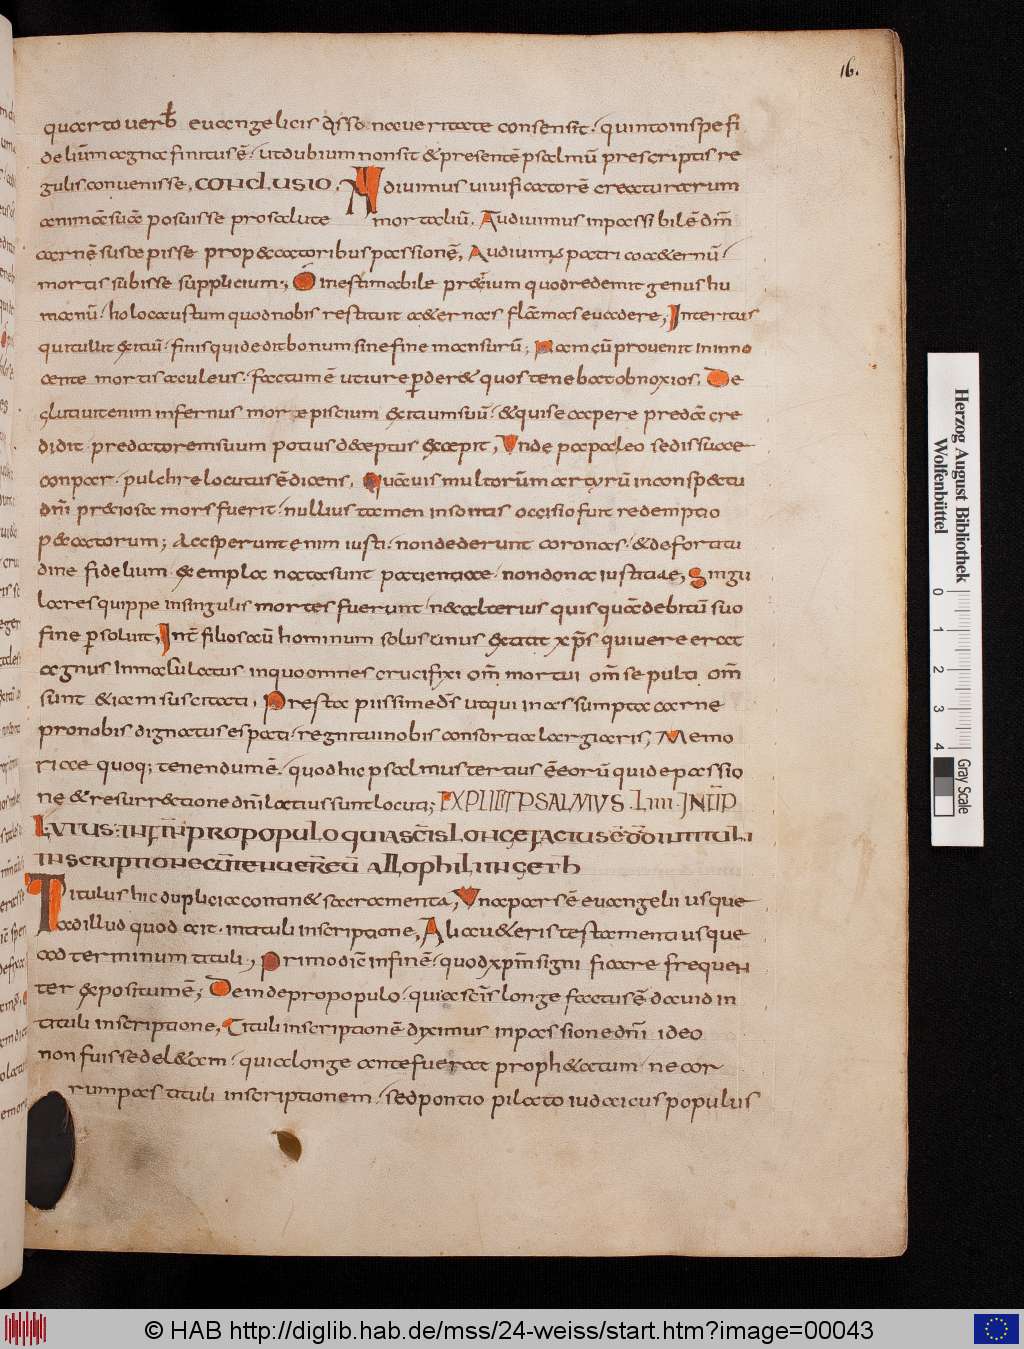 16.
quarto verƀ euangelicis q̇ssona ueritate consensit · quinto in spe fi
deliūm agna finitus ē · ut dubium non sit & presentē psalmū prescriptis re
gulis conuenisse, CONCLUSIO. Adiuimus uiuificatorē creaturarum
animā suā posuisse pro salute mortaliū. Audiuimus inpassibilē dn̄m
carnē suscepisse prop&catoribus passionē, Audiuimꝰ patri coa&ernū ·
mortis subisse supplicium; O inestimabile pretium quod redemit genus hu
manū · holocaustum quod nobis restituit a&ernas flāmas euadere, Interitus
qui tulit exitiū · finis qui dedit bonum sine fine mansurū; Nam cū prouenit in inno
cente mortis aculeus · factum ē ut iure perder& quos tenebat obnoxios, De
glutiuit enim infernus morte piscium exitium suū · & qui se capere predā cre
didit predatorem suum potius deceptus excepit, Unde papa leo sedis suae
conpar · pulchre locutus ē dicens, Quāuis multorūm martyrū in conspectu
dn̄i preciosa mors fuerit · nullius tamen insontis occisio fuit redemptio
p&catorum; Acceperunt enim iusti · non dederunt coronas · & de fortitu
dine fidelium exempla nata sunt patientiae · non dona iustitiae, Singu
lares quippe in singulis mortes fuerunt · nec alterius quisquā debitū suo
fine persoluit, Int̄ filios aū hominum solus unus extitit xp̄s qui uere erat
agnus inmaculatus in quo omnes crucifixi om̄ mortui om̄ sepulti om̄
sunt & iam suscitati, Presta piissime ds̄ ut qui in assumpta carne
pro nobis dignatus es pati · regni tui nobis consortia largiaris, Memo
riae quoq; tenendum ē · quod hic psalmus tertius ē eorū qui de passio
ne & resurrectione dn̄i latius sunt locuti; EXPLICIT PSALMVS · LIIII · INCIP
LVTUS: IN FINĒ PRO POPULO QUI A SCĪS LONGE FACTUS Ē DD IN TITULI
INSCRIPTIONE CŪ TENUERT̄ EŪ ALLOPHILI IN GETH
Titulus hic duplicia contin& sacramenta, Una pars ē euangelii usque
ad illud quod ait · in tituli inscriptione, Alia u&eris testamenti usque
ad terminum tituli, Primo dic̄ in finē · quod xp̄m significare frequen
ter expositum ē; Deinde pro populo · qui a scīs longe factus ē dauid in
tituli inscriptione, Tituli inscriptionē diximus in passione dn̄i ideo
non fuisse del&am · quia longe ante fuerat proph&atum · ne cor
rumpas tituli inscriptionem · sed pontio pilato iudaicus populus
Herzog August Bibliothek
Wolfenbüttel
0 1 2 3 4
Gray Scale
© HAB http://diglib.hab.de/mss/24-weiss/start.htm?image=00043